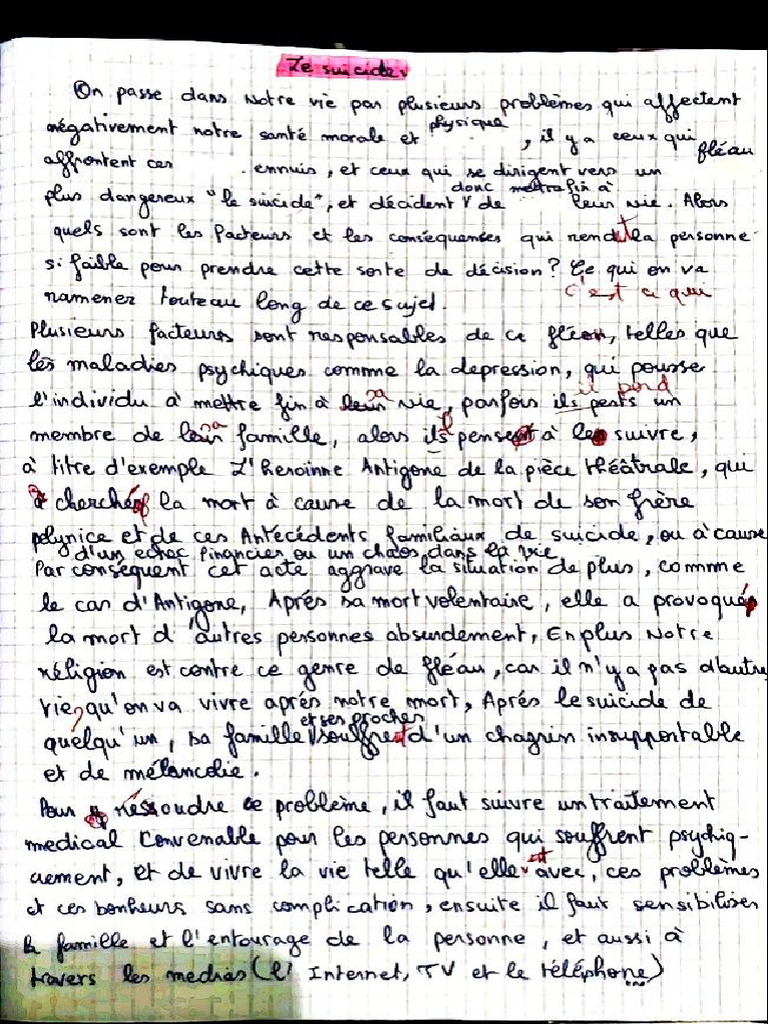 Le suicide
On passe dans notre vie par plusieurs problèmes qui affectent
négativement notre santé morale et physique, il y a ceux qui
affrontent ces ennuis, et ceux qui se dirigent vers un fléau
plus dangereux "le suicide", et décident donc de mettre fin à leur vie. Alors
quels sont les facteurs et les conséquences qui rend la personne
si faible pour prendre cette sorte de décision? Ce qui on va
c'est ce qui
ramener tout au long de ce sujet.
Plusieurs facteurs sont responsables de ce fléau, telles que
les maladies psychiques comme la depression, qui pousse
l'individu à mettre fin à sa vie, parfois il perd un
membre de sa famille, alors il pense à le suivre,
à titre d'exemple L'heroinne Antigone de la pièce théâtrale, qui
a cherché la mort à cause de la mort de son frère
polynice et de ces Antécédents familiaux de suicide, ou à cause
d'un echec financier ou un chaos dans la vie
Par conséquent cet acte aggrave la situation de plus, comme
le cas d'Antigone, Aprés sa mort volentaire, elle a provoqué
la mort d'autres personnes absurdement, En plus Notre
réligion est contre ce genre de fléau, car il n'y a pas d'autre
vie qu'on va vivre aprés notre mort, Aprés le suicide de
quelqu'un, sa famille et ses proches souffrent d'un chagrin insupportable
et de mélancolie.
Pour réssoudre ce problème, il faut suivre un traitement
medical convenable pour les personnes qui souffrent psychiq-
uement, et de vivre la vie telle qu'elle est avec, ces problèmes
et ces bonheurs sans complication, ensuite il faut sensibiliser
la famille et l'entourage de la personne, et aussi à
travers les medias (l'Internet, TV et le téléphone)